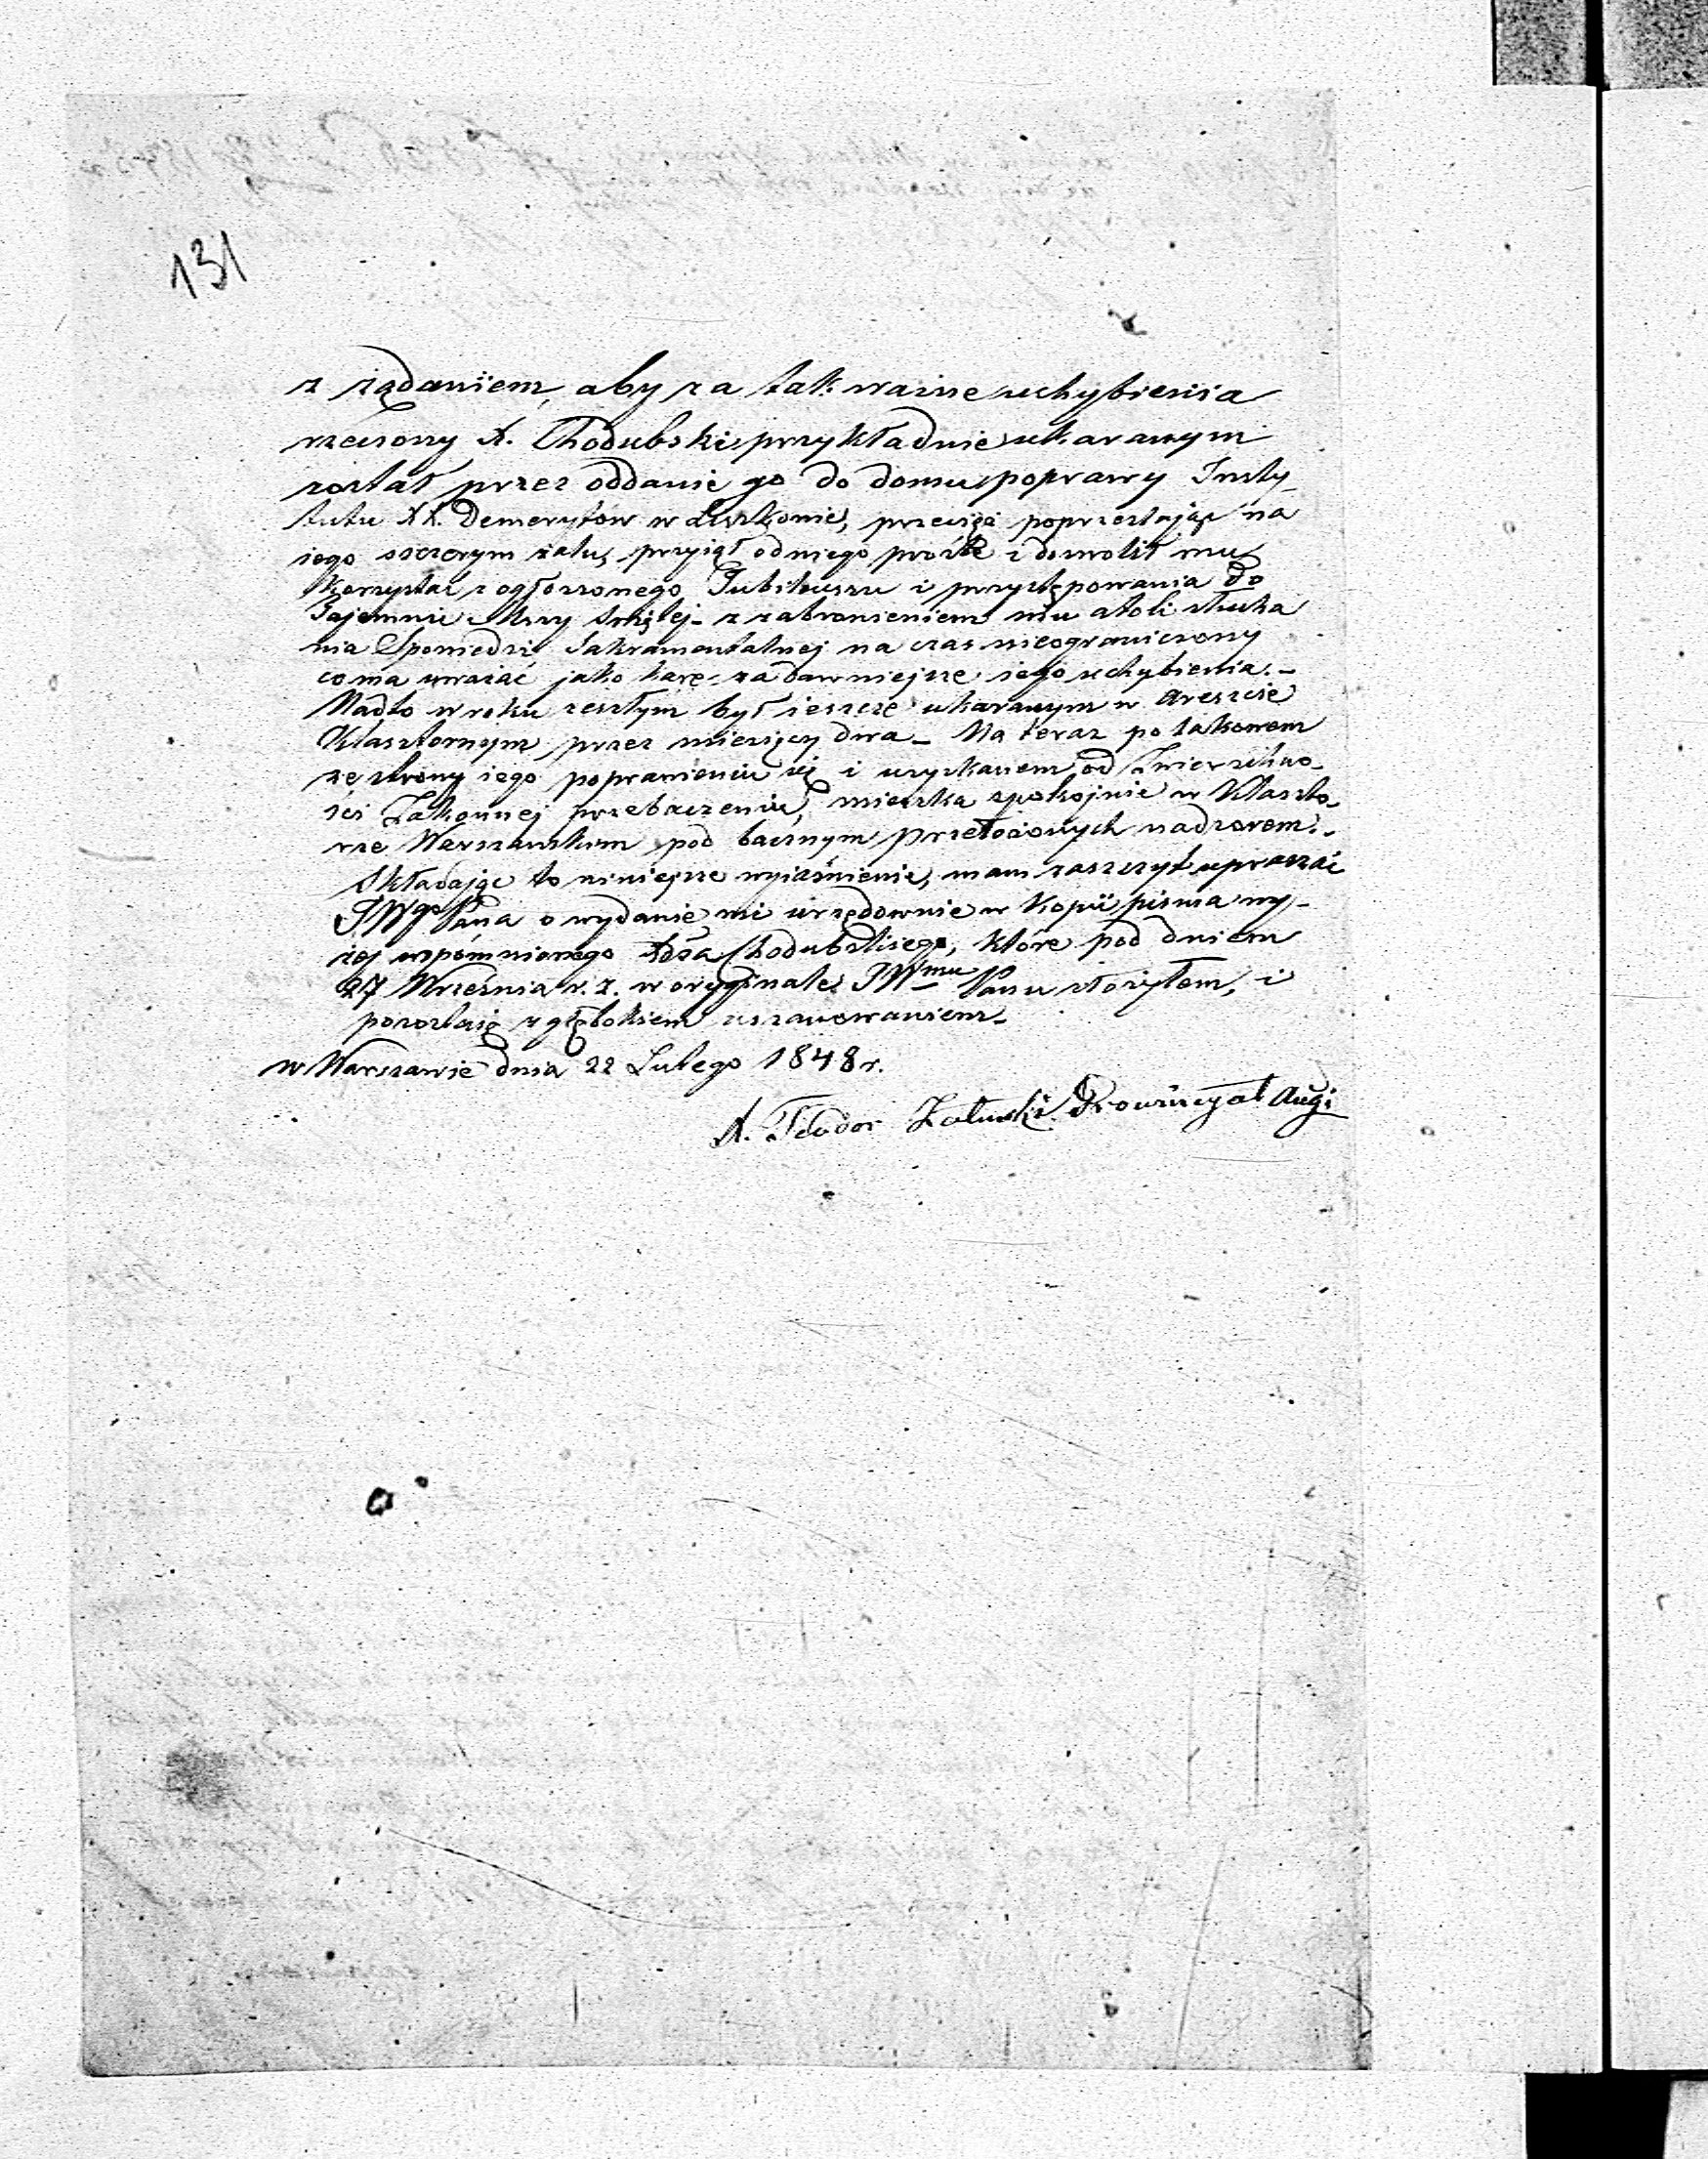 131
z żądaniem, aby za tak ważne uchybienia
rzeczony X. Chodubski przykładnie ukaranym
został przez oddanie go do domu poprawy Insty-
tutu XX. Demerytów w Liszkowie, przecięż poprzestając na
jego szczerym żalu, przyjął od niego prośbę i dozwolił mu
Korzystać z ogłoszonego Jubileuszu i przystępowania do
Tajemnic Mszy Swiętej - z zabronieniem mu atoli słucha
nia Spowiedzi Sakramentalnej na czas nieograniczony
co ma uważać jako karę za dawniejsze jego uchybienia. -
Nadto w roku zeszłym był jeszcze ukaranym w Areszcie
Klasztornym przez miesięcy dwa - Na teraz po takowem
ze strony jego poprawieniu się i uzyskanem od Zwierzchno-
ści Zakonnej przebaczeniu, mieszka spokojnie w Klaszto-
rze Warszawskim pod bacznym przełożonych nadzorem. -
Składając to niniejsze wyjaśnienie, mam zaszczyt upraszać
JWgo Pana o wydanie mi urzędownie w Kopii pisma wy-
żej wspómnionego Xdza Chodubskiego, które pod dniem
27 Września r. z. w oryginale JWmu Panu złożyłem, i
pozostaję z głębokiem uszanowaniem -
w Warszawie dnia 22 Lutego 1848 r.
X. Teodor Załuski Prowincyał Aug: